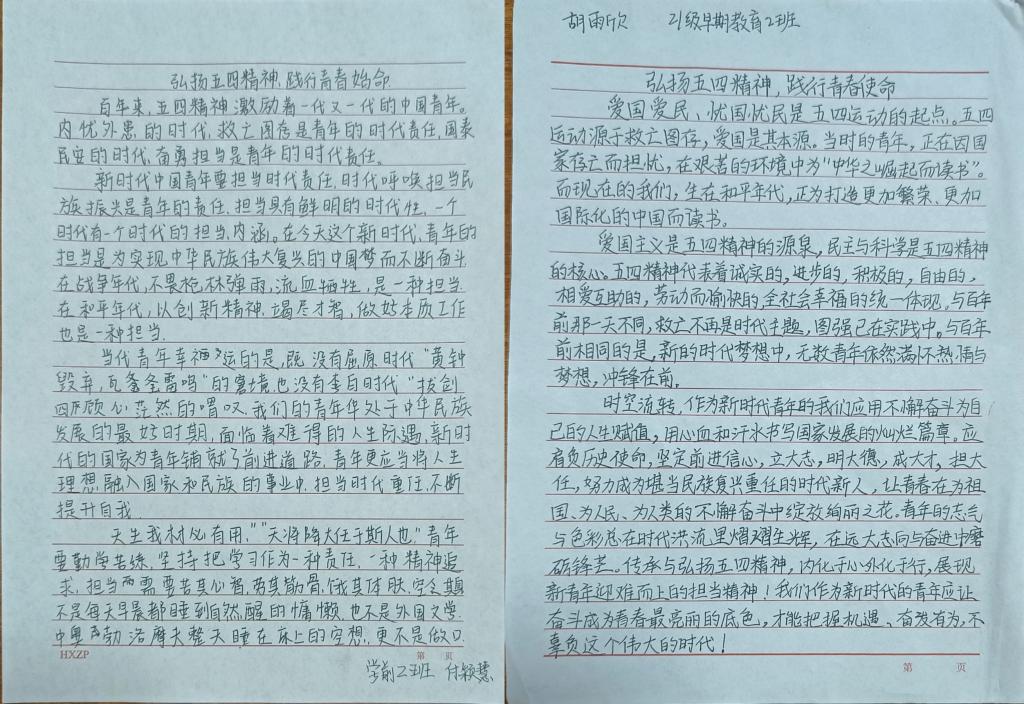 弘扬五四精神、践行青春始命
百年来，五四精神激励着一代又一代的中国青年。
内忧外患的时代，救亡图存是青年的时代责任，国泰
民安的时代，奋勇担当是青年的时代责任。
新时代中国青年要担当时代责任，时代呼唤担当民
族振兴是青年的责任，担当具有鲜明的时代性，一个
时代有一个时代的担当内涵。在今天这个新时代，青年的
担当是为实现中华民族伟大复兴的中国梦而不断奋斗
在战争年代，不畏枪林弹雨，流血牺牲，是一种担当
在和平年代，以创新精神，竭尽才智，做好本质工作
也是一种担当.
当代青年幸运的是，既没有屈原时代“黄钟
毁弃，瓦釜全雷鸣”的窘境也没有李白时代“拔剑
四顾心茫然的喟叹，我们的青年华处于中华民族
发展的最好时期，面临着难得的人生际遇，新时
代的国家为青年铺就了前进道路，青年更应当将人生
理想融入国家和民族的事业中，担当时代重任，不断
提升自我
天生我材必有用，”“天将降大任于斯人也”青年
要勤学苦练，坚持把学习作为一种责任，一种精神追
求，担当需要苦其心智，劳其筋骨，饿其体肤，空乏其
不是每天早晨都睡到自然醒的慵懒，也不是外国文学
中奥勃洛摩夫整天睡在床上的空想，更不是做口
HXZP
第 页
学前2班 付颖慧
胡雨欣 21级早期教育2班
弘扬五四精神，践行青春使命
爱国爱民、忧国忧民是五四运动的起点。五四
运动源于救亡图存，爱国是其本源。当时的青年，正在因国
家存亡而担忧，在艰苦的环境中为“中华之崛起而读书”。
而现在的我们，生在和平年代，正为打造更加繁荣、更加
国际化的中国而读书。
爱国主义是五四精神的源泉，民主与科学是五四精神
的核心。五四精神代表着诚实的，进步的，积极的，自由的，
相爱互助的，劳动而愉快的，全社会幸福的统一体现。与百年
前那一天不同，救亡不再是时代主题，图强已在实践中。与百年
前相同的是，新的时代梦想中，无数青年依然满怀热情与
梦想，冲锋在前。
时空流转，作为新时代青年的我们应用不懈奋斗为自
己的人生赋值，用心血和汗水书写国家发展的灿烂篇章。应
肩负历史使命，坚定前进信心，立大志，明大德，成大才，担大
任，努力成为堪当民族复兴重任的时代新人，让青春在为祖
国、为人民、为人类的不懈奋斗中绽放绚丽之花。青年的志气
与色彩总在时代洪流里熠熠生辉，在远大志向与奋进中磨
砺锋芒。传承与弘扬五四精神，内化于心外化于行，展现
新青年迎难而上的担当精神！我们作为新时代的青年应让
奋斗成为青春最亮丽的底色，才能把握机遇、奋发有为，不
辜负这个伟大的时代！
第 页